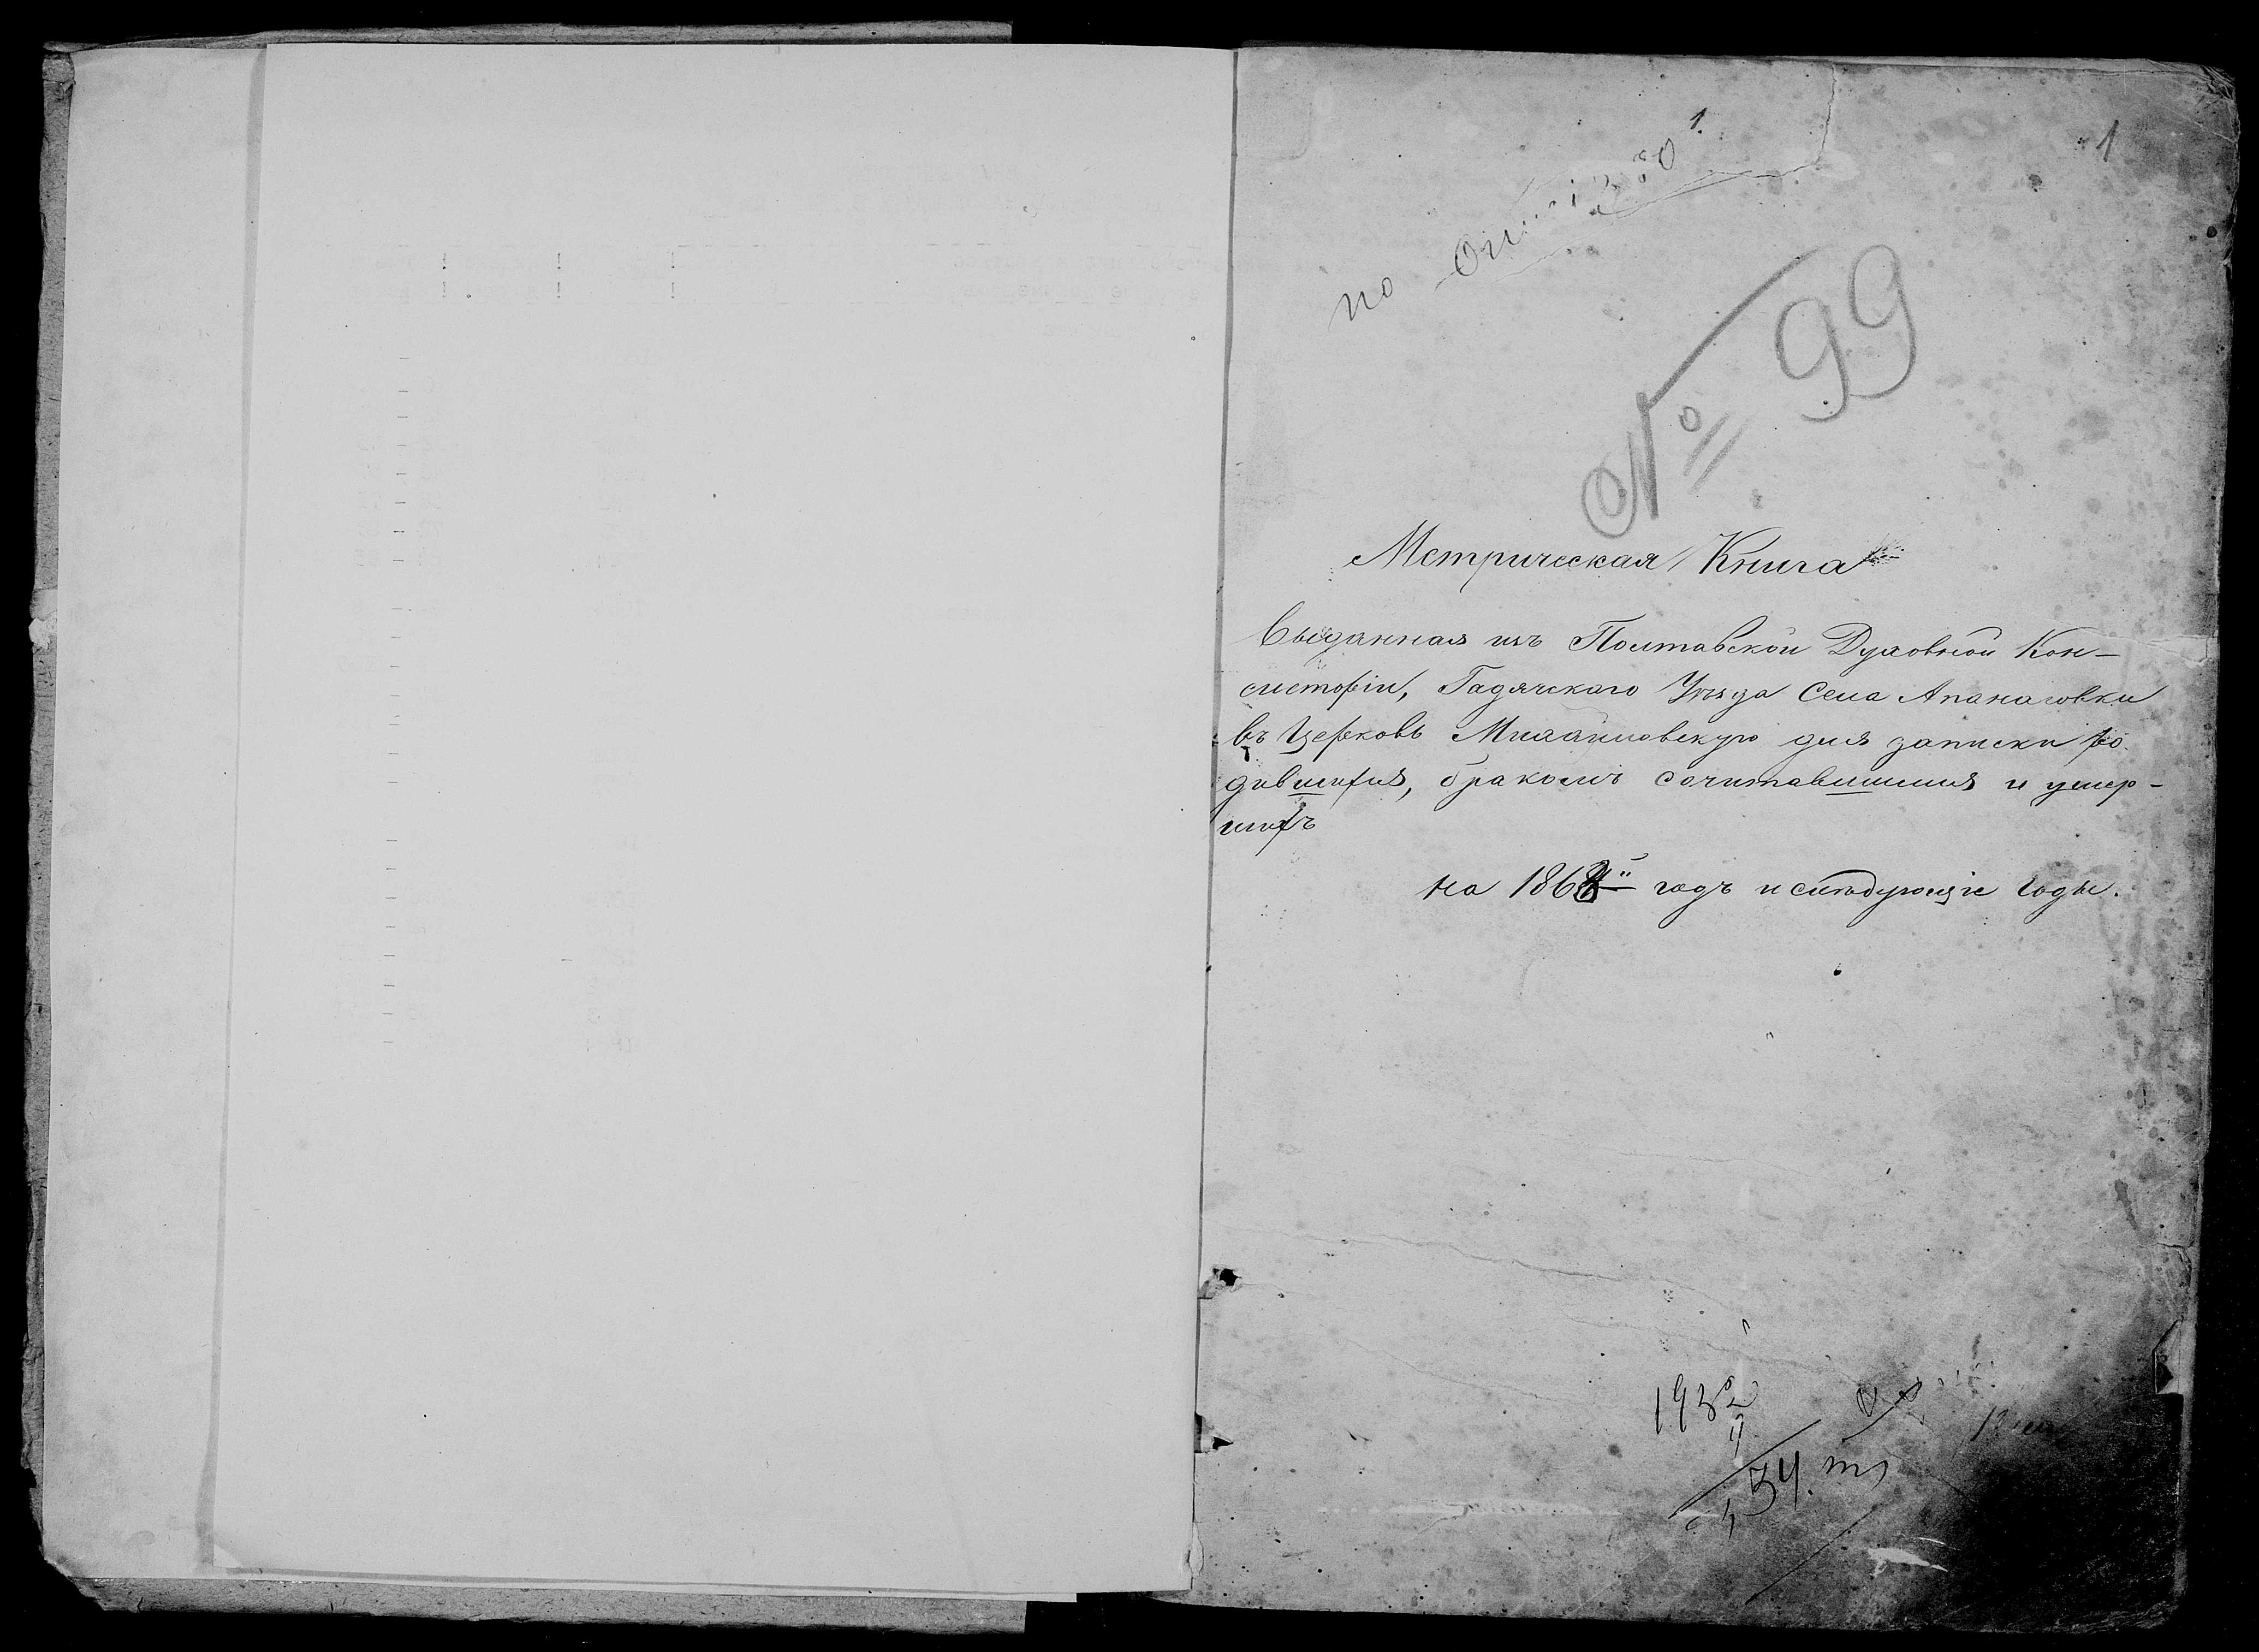 1
по
№ 99
Метрическая Книга
Выданная изъ Полтавской Духовной Кон-
систоріи, Гадячскаго Уѣзда Села Апанасовки
въ Церковь Михайловскую для записки ро
дившихся, бракомъ сочитавшихся и умер-
шихъ
на годъ и слѣдующіе годы.